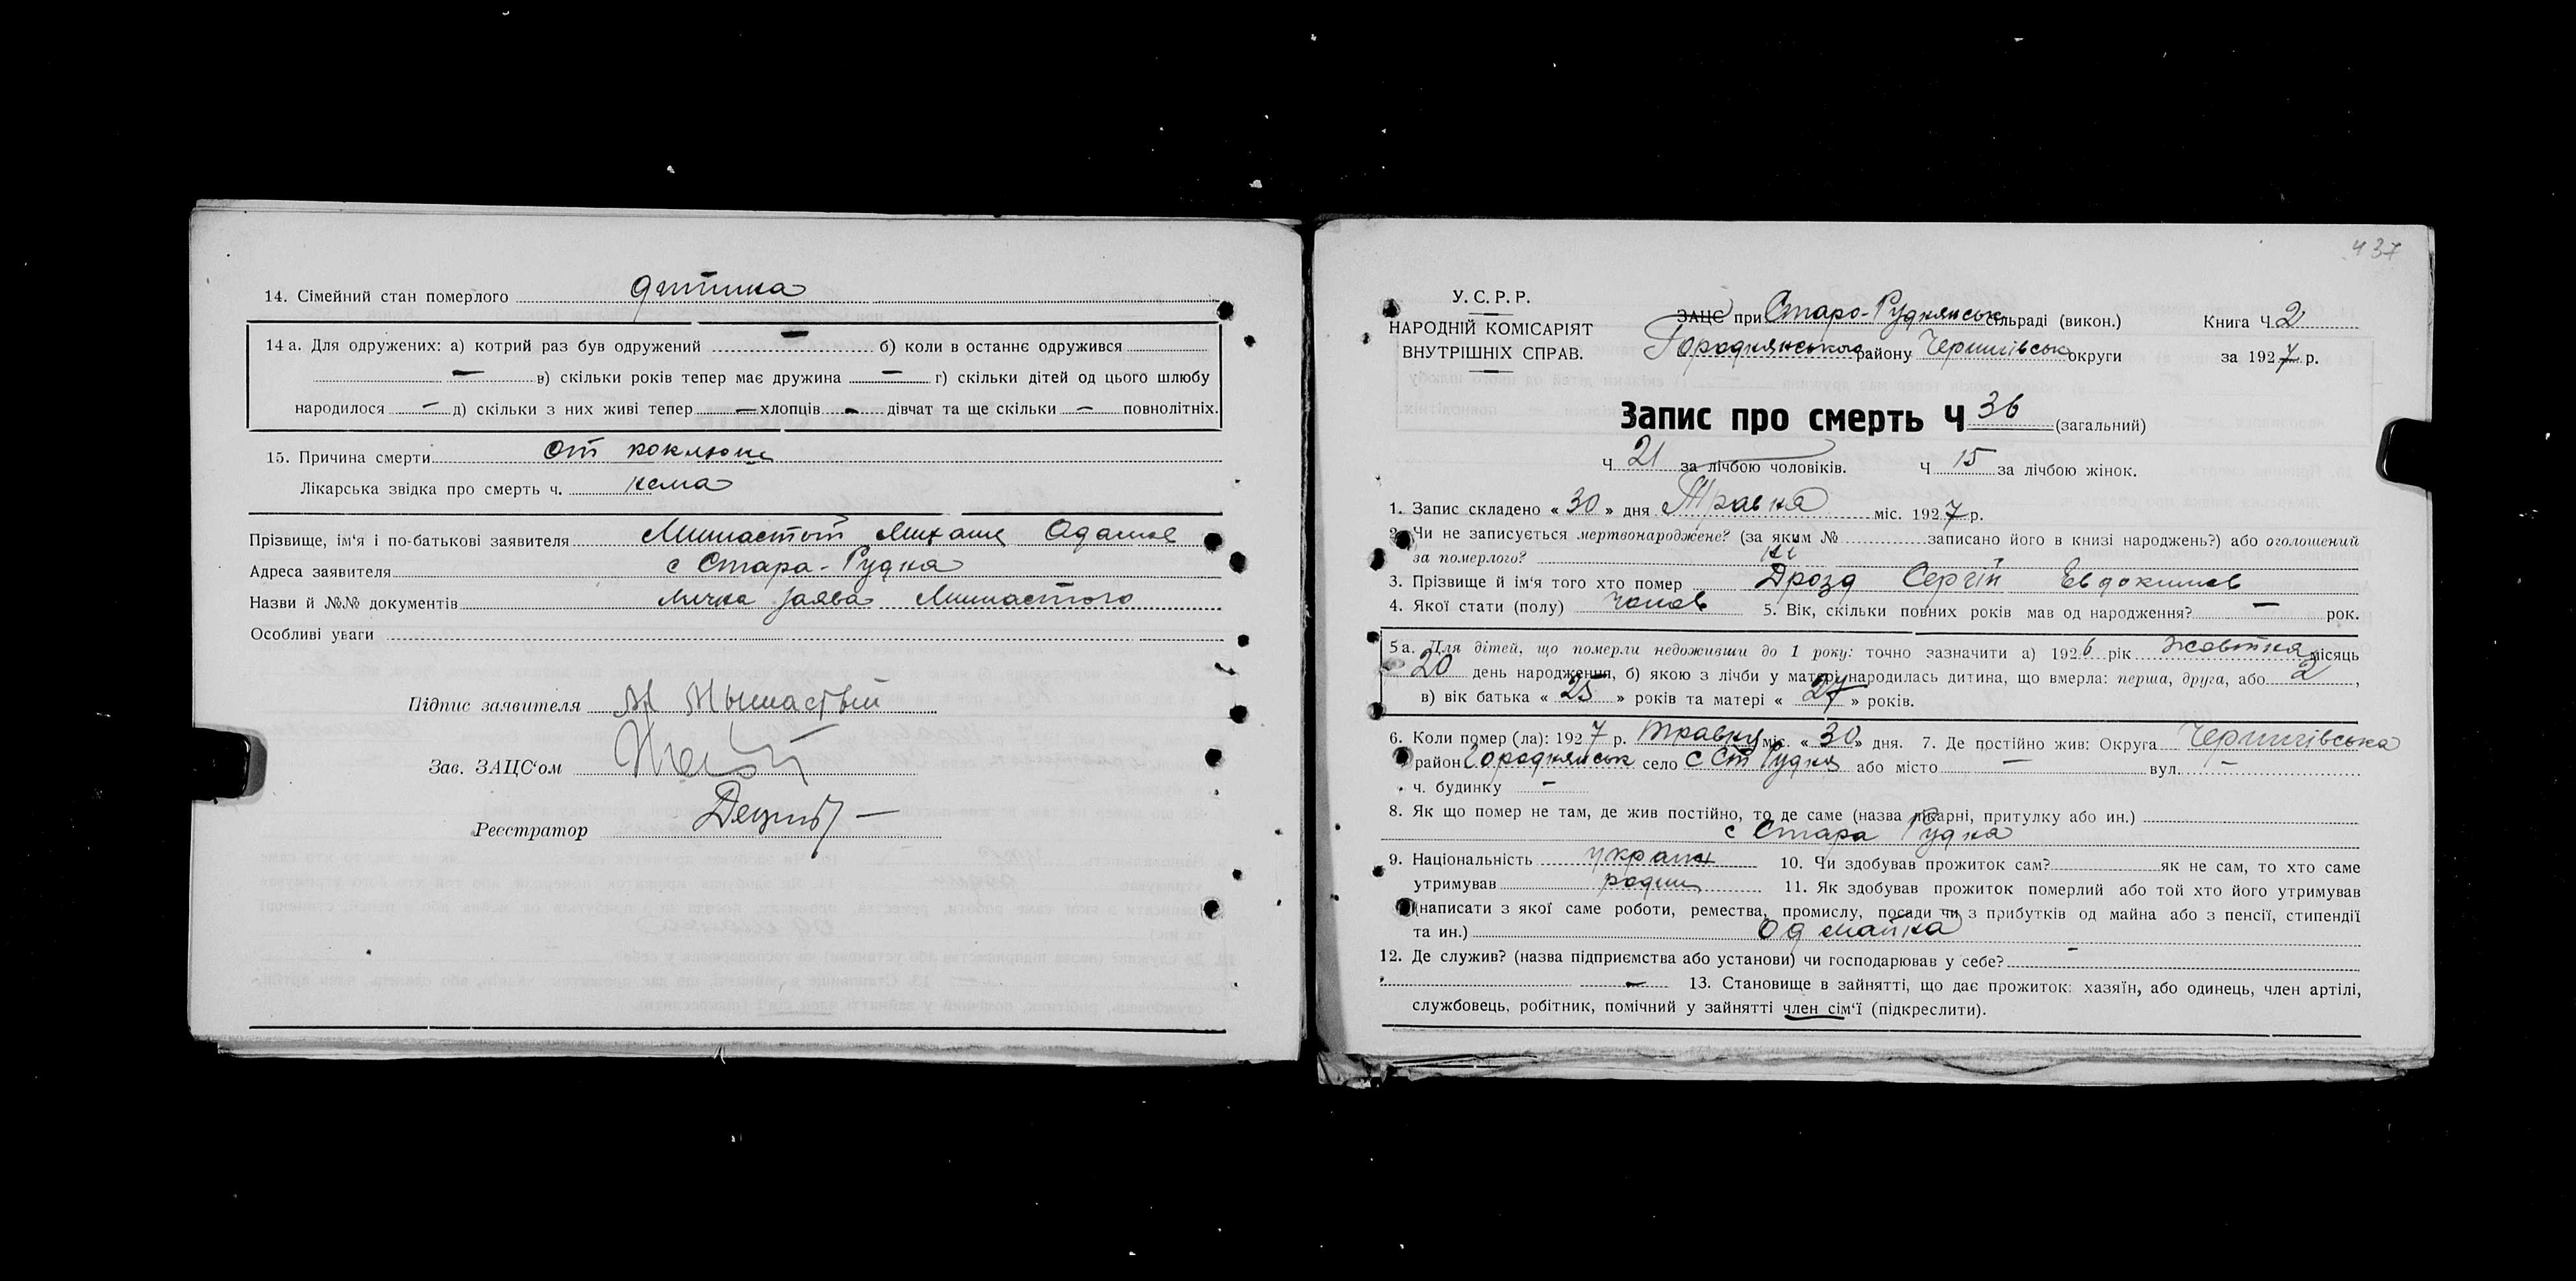 14. Сімейний стан померлого дитина
14 а. Для одружених: а) котрий раз був одружений — б) коли в останнє одружився
— в) скільки років тепер має дружина — г) скільки дітей од цього шлюбу
народилося — д) скільки з них живі тепер — хлопців - дівчат та ще скільки — повнолітніх.
15. Причина смерти от коклюша
Лікарська звідка про смерть ч. нема
Прізвище, ім'я і по-батькові заявителя Михаил Адамов
Адреса заявителя с Стара-Рудня
Назви й №№ документів лична заява
Особливі уваги
Підпис заявителя М
Зав. ЗАЦС'ом
Реєстратор
437
У.С.Р.Р.
НАРОДНІЙ КОМІСАРІЯТ
ВНУТРІШНІХ СПРАВ.
ЗАЦС при Старо-Руднянськ сільраді (викон.)
Городнянського району Чернигівськ округи
Книга Ч. 2
за 1927 р.
Запис про смерть Ч 36 (загальний)
Ч 21 за лічбою чоловіків. Ч 15 за лічбою жінок.
1. Запис складено « 30 » дня Травня міс. 1927 р.
2. Чи не записується мертвонароджене? (за яким № записано його в книзі народжень?) або оголошений
за померлого? Ні
3. Прізвище й ім'я того хто помер Дрозд Сергій Евдокимов
4. Якої стати (полу) чолов 5. Вік, скільки повних років мав од народження? — рок.
5 а. Для дітей, що померли недоживши до 1 року: точно зазначити а) 1926 рік жовтня місяць
20 день народження, б) якою з лічби у матері народилась дитина, що вмерла: перша, друга, або 2,
в) вік батька « 25 » років та матері « 27 » років.
6. Коли помер (ла): 1927 р. Травня міс. « 30 » дня. 7. Де постійно жив: Округа Чернигівська
район Городнянськ село с Ст Рудня або місто — вул. —
ч. будинку —
8. Як що помер не там, де жив постійно, то де саме (назва лікарні, притулку або ин.)
с Стара Рудня
9. Національність україн 10. Чи здобував прожиток сам? як не сам, то хто саме
утримував родич 11. Як здобував прожиток померлий або той хто його утримував
(написати з якої саме роботи, ремества, промислу, посади чи з прибутків од майна або з пенсії, стипендії
та ин.) Од майна
12. Де служив? (назва підприємства або установи) чи господарював у себе? -
— 13. Становище в зайнятті, що дає прожиток: хазяїн, або одинець, член артілі,
службовець, робітник, помічний у зайнятті член сім'ї (підкреслити).